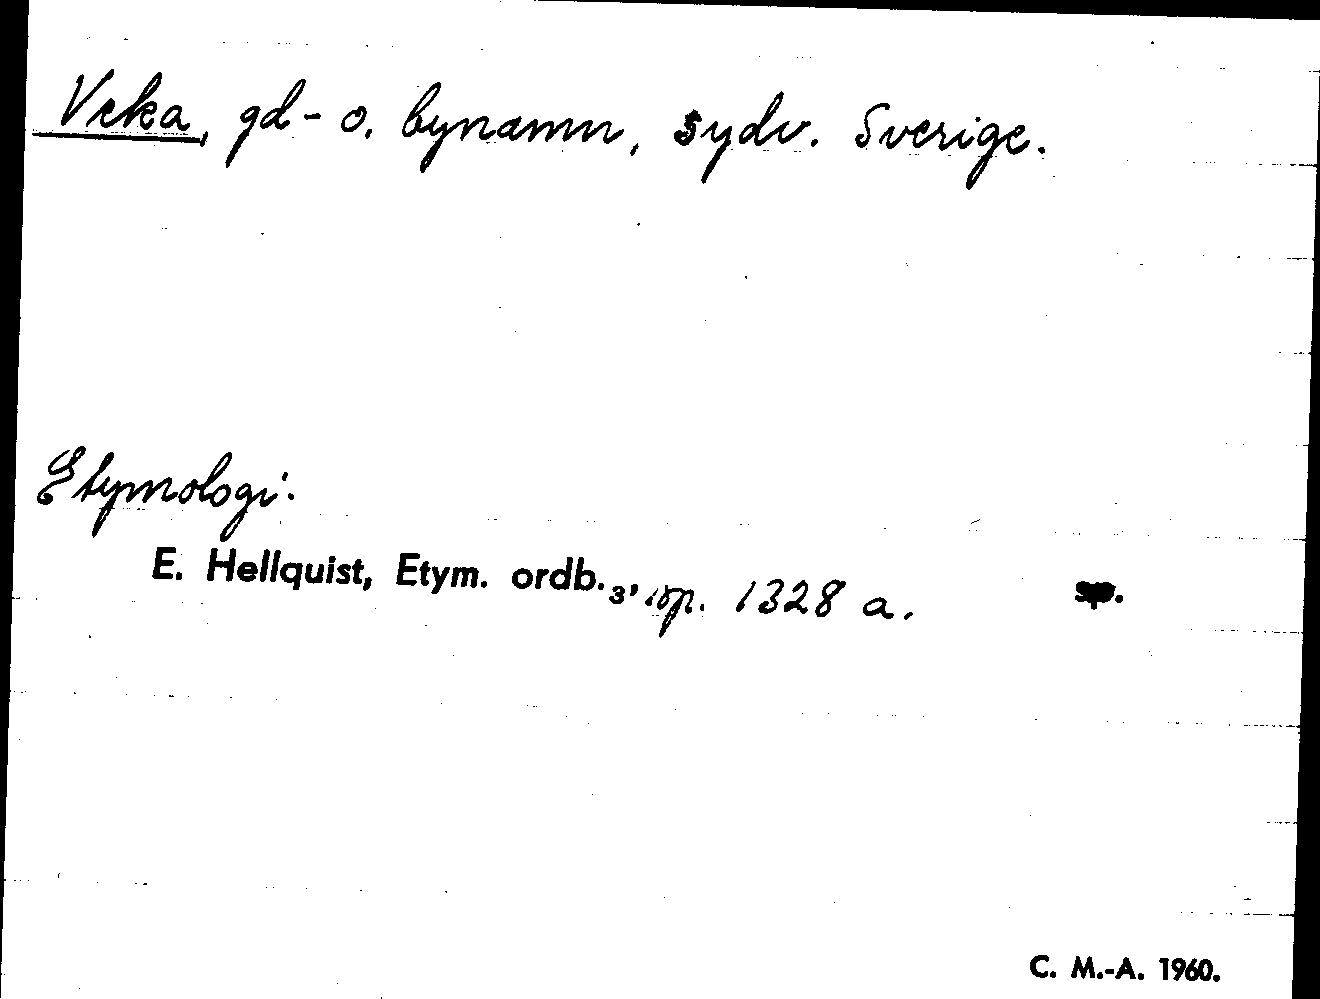 Veka, gd- o. bynamn, sydv. Sverige.
Etymologi.
E. Hellquist, Etym. ordb. 3, sp. 1328 a.
C. M.-A. 1960.